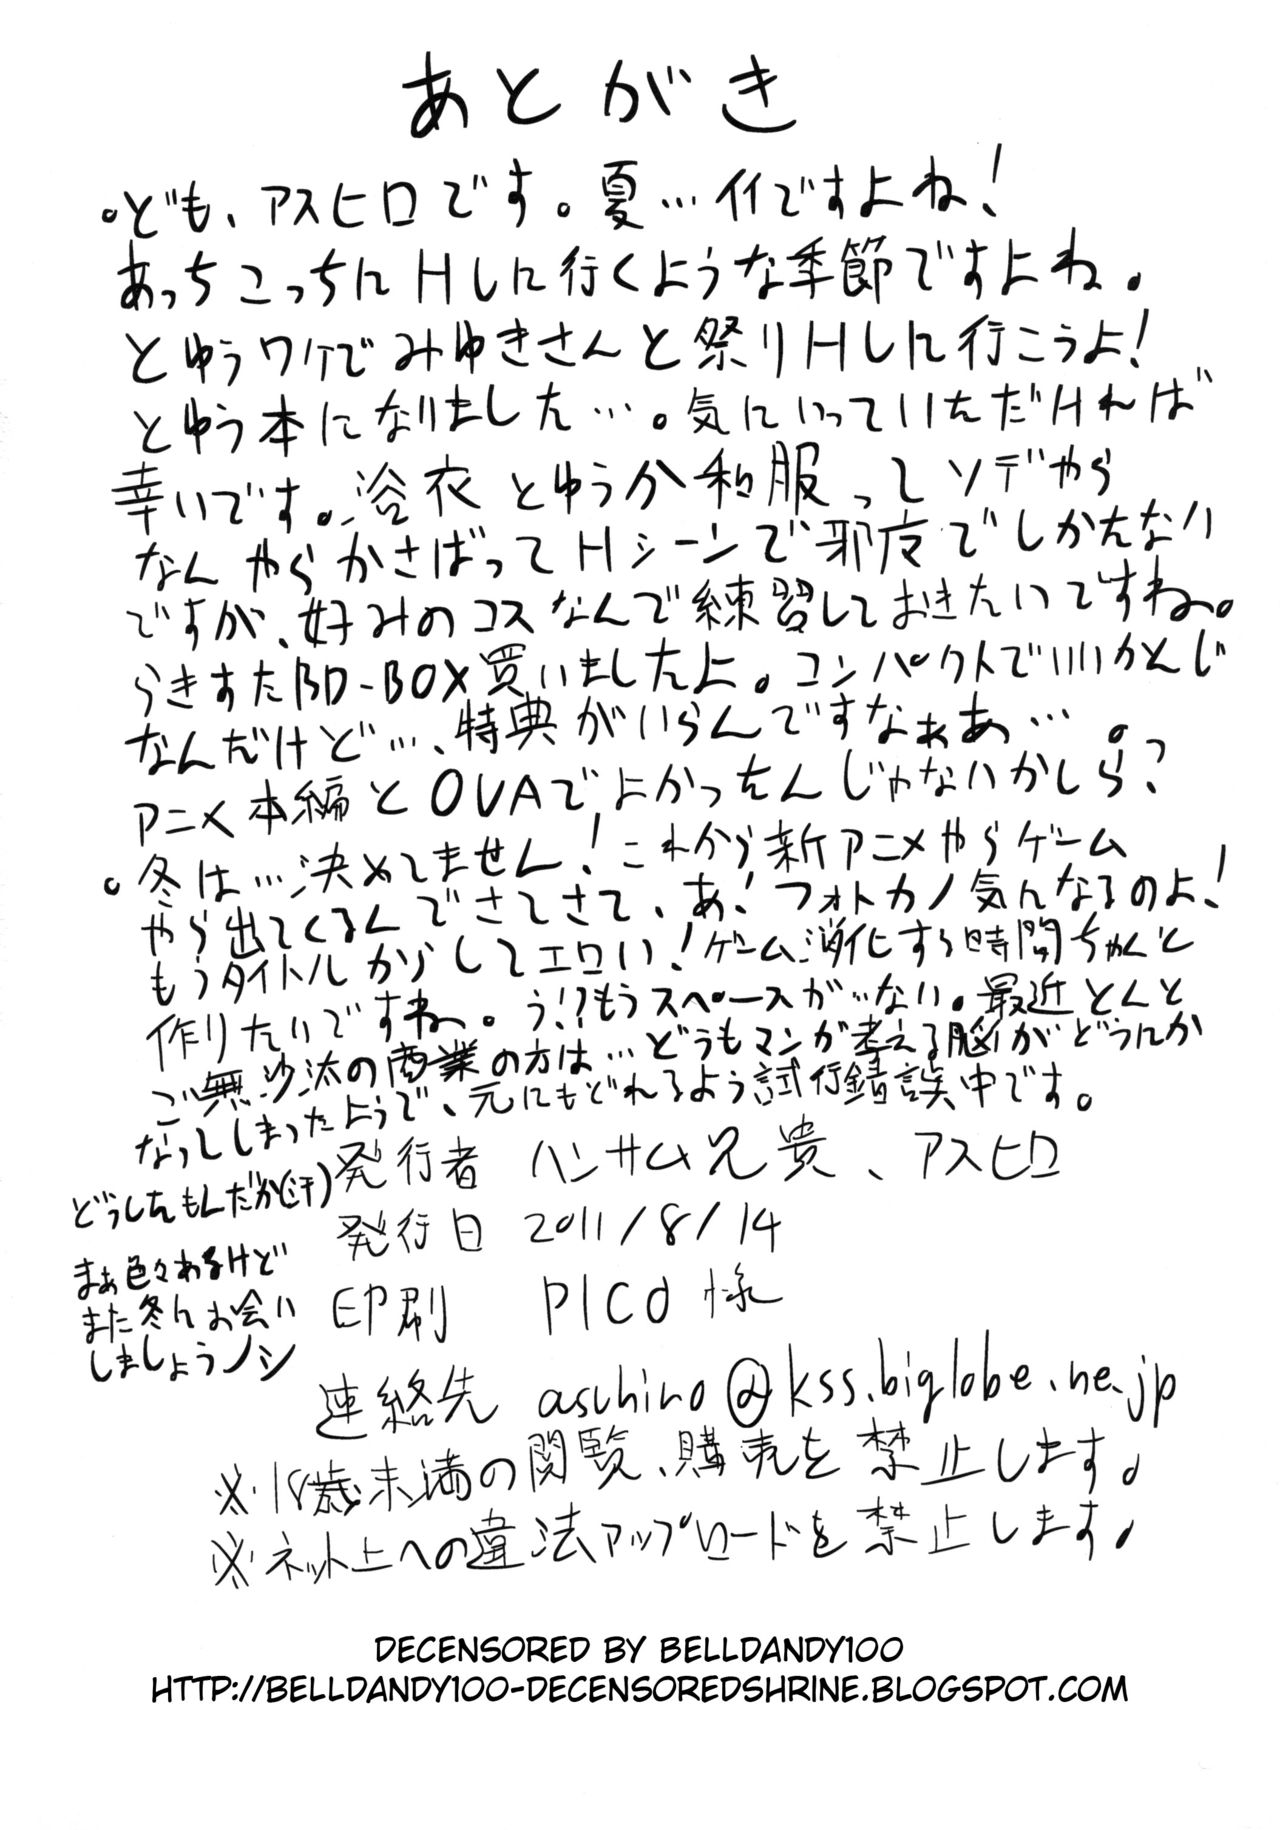 あとがき
。ども、アスヒロです。夏…イイですよね！
あっちこっちにHしに行くような季節ですよね。
とゆうワケでみゆきさんと祭りHしに行こうよ！
とゆう本になりました…。気にいっていただければ
幸いです。浴衣とゆうか和服ってソデやら
なんやらかさばってHシーンで邪魔でしかたない
ですが、好みのコスなんで練習しておきたいですね。
らきすたBD-BOX買いましたよ。コンパクトでいいかんじ
なんだけど…、特典がいらんですなぁあ…。
アニメ本編とOVAでよかったんじゃないかしら？
。冬は…決めてません！これから新アニメやらゲーム
やら出てくるんでさてさて、あ！フォトカノ気になるのよ！
もうタイトルからしてエロい！ゲーム消化する時間ちゃんと
作りたいですねー。う！？もうスペースがない。最近とんと
ご無沙汰の商業の方は…どうもマンガ考える脳がどうにか
なってしまったようで、元にもどれるよう試行錯誤中です。
どうしたもんだか（汗）
まぁ色々あるけど
また冬にお会い
しましょうノシ
発行者 ハンサム兄貴、アスヒロ
発行日 2011/8/14
印刷 PICO様
連絡先 asuhiro@kss.biglobe.ne.jp
※18歳未満の閲覧、購売を禁止します。
※ネット上への違法アップロードを禁止します。
DECENSORED BY BELLDANDY100
HTTP://BELLDANDY100-DECENSOREDSHRINE.BLOGSPOT.COM